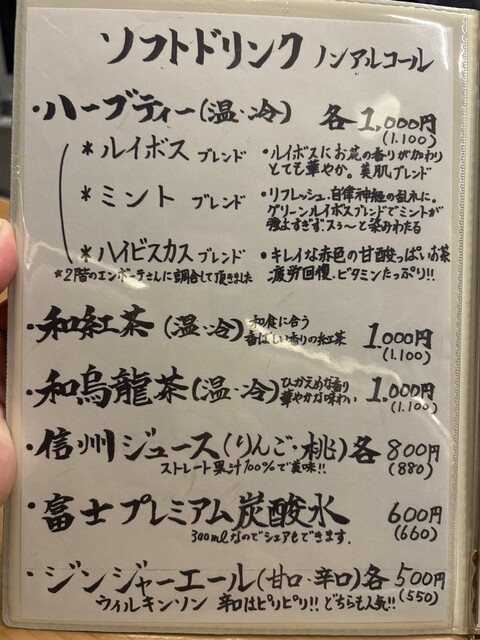 ソフトドリンク ノンアルコール
・ハーブティー(温・冷) 各1,000円
(1.100)
*ルイボス ブレンド ・ルイボスにお花の香りが加わり
とても華やか。美肌ブレンド
*ミント ブレンド ・リフレッシュ、自律神経の乱れに。
グリーンルイボスブレンドでミントが
強すぎず、スぅ〜と染みわたる
*ハイビスカス ブレンド ・キレイな赤色の甘酸っぱいお茶
疲労回復・ビタミンたっぷり!!
*2階のエンボーチさんに調合して頂きました
・和紅茶(温・冷) 和食に合う
香ばしい香りの紅茶 1,000円
(1.100)
・和烏龍茶(温・冷) ひかえめな香り
華やかな味わい 1,000円
(1.100)
・信州ジュース(りんご・桃)各 800円
ストレート果汁100%で美味!! (880)
・富士プレミアム炭酸水 600円
300mlなのでシェアもできます. (660)
・ジンジャーエール(甘口・辛口)各 500円
ウィルキンソン 辛口はピリピリ!! どちらも人気!! (550)